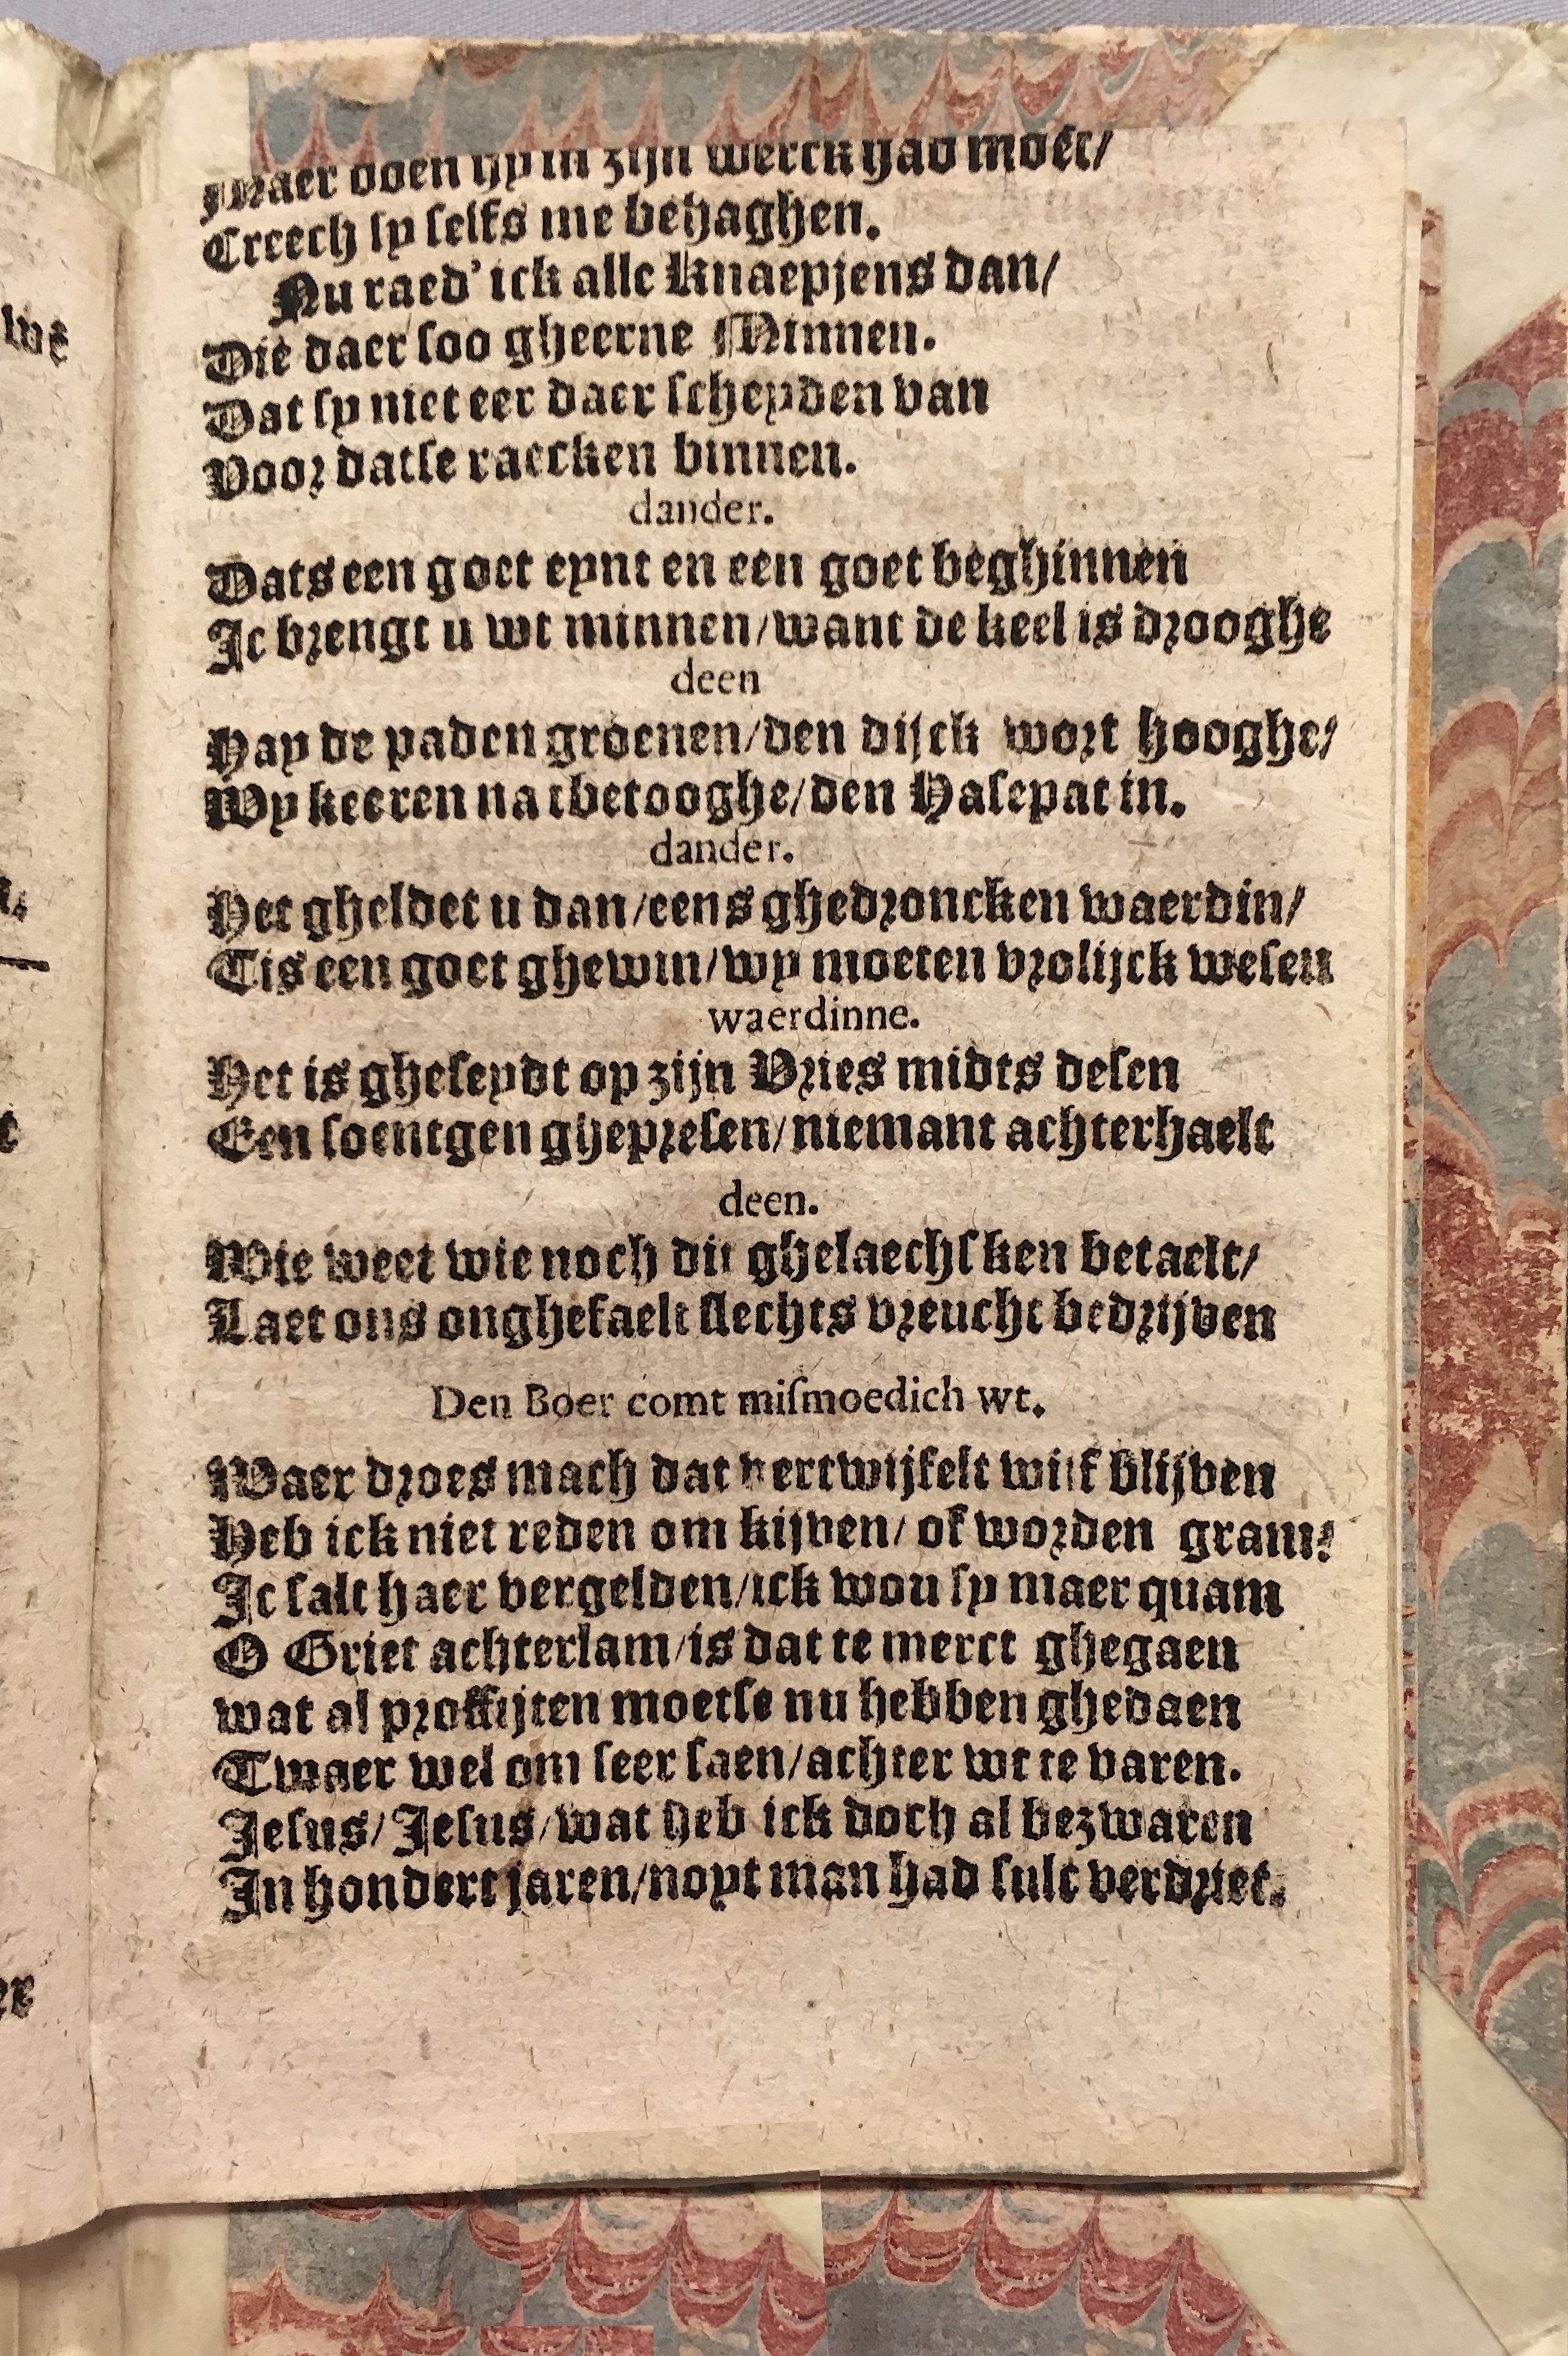 Maer doen hy in zijn werck had moet/
Creech sy selfs me behaghen.
Nu raed' ick alle Knaepjens dan/
Die daer soo gheerne Minnen.
Dat sy niet eer daer scheyden van
Voor datse raecken binnen.
dander.
Dats een goet eynt en een goet beghinnen
Ic brengt u wt minnen/want de keel is drooghe
deen
Hay de paden groenen/den dijck wort hooghe/
Wy keeren na tbetooghe/den Hasepat in.
dander.
Het gheldet u dan/eens ghedroncken waerdin/
Tis een goet ghewin/wy moeten vrolijck wesen
waerdinne.
Het is gheseydt op zijn Vries midts desen
Een soentgen ghepresen/niemant achterhaelt
deen.
Wie weet wie noch dit ghelaechsken betaelt/
Laet ons onghefaelt slechts vreucht bedrijven
Den Boer comt mismoedich wt.
Waer droes mach dat vertwijfelt wijf blijven
Heb ick niet reden om kijven/ of worden gram?
Ic salt haer vergelden/ick wou sy maer quam
O Griet achterlam/is dat te merct ghegaen
wat al proffijten moetse nu hebben ghedaen
Twaer wel om seer saen/achter wt te varen.
Jesus/Jesus/wat heb ick doch al bezwaren
In hondert jaren/noyt man had sulc verdriet.
we
er